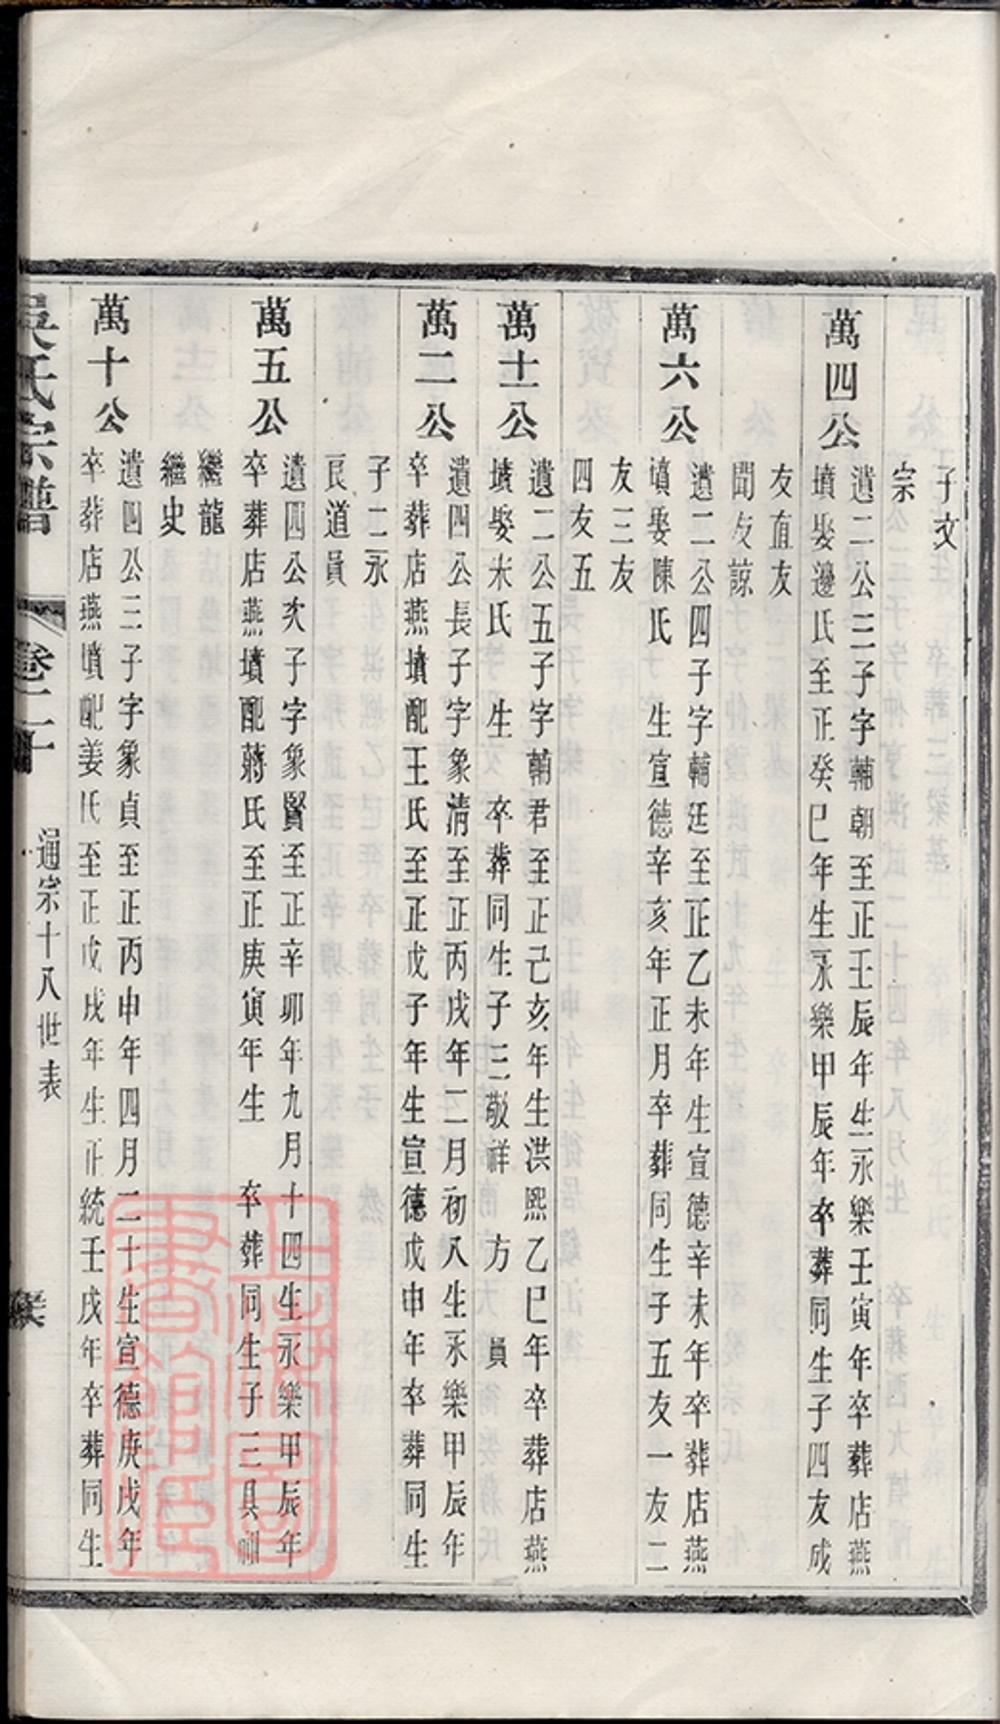 子文
宗
萬四公
遺二公三子字輔朝至正壬辰年生永樂壬寅年卒葬店燕
墳娶邊氏至正癸巳年生永樂甲辰年卒葬同生子四友成
友直友
聞友諒
萬六公
遺二公四子字輔廷至正乙未年生宣德辛未年卒葬店燕
墳娶陳氏 生宣德辛亥年正月卒葬同生子五友一友二
友三友
四友五
萬十一公
遺二公五子字輔君至正己亥年生洪熙乙巳年卒葬店燕
墳娶宋氏 生 卒葬同生子三敬祥 方 員
萬二公
遺四公長子字象清至正丙戌年二月初八生永樂甲辰年
卒葬店燕墳配王氏至正戊子年生宣德戊申年卒葬同生
子二永
良道員
萬五公
遺四公次子字象賢至正辛卯年九月十四生永樂甲辰年
卒葬店燕墳配蔣氏至正庚寅年生 卒葬同生子三具訓
繼龍
繼史
萬十公
遺四公三子字象貞至正丙申年四月二十生宣德庚戌年
卒葬店燕墳配姜氏至正戊戌年生正統壬戌年卒葬同生
吳氏宗譜 卷二十 通宗十八世表